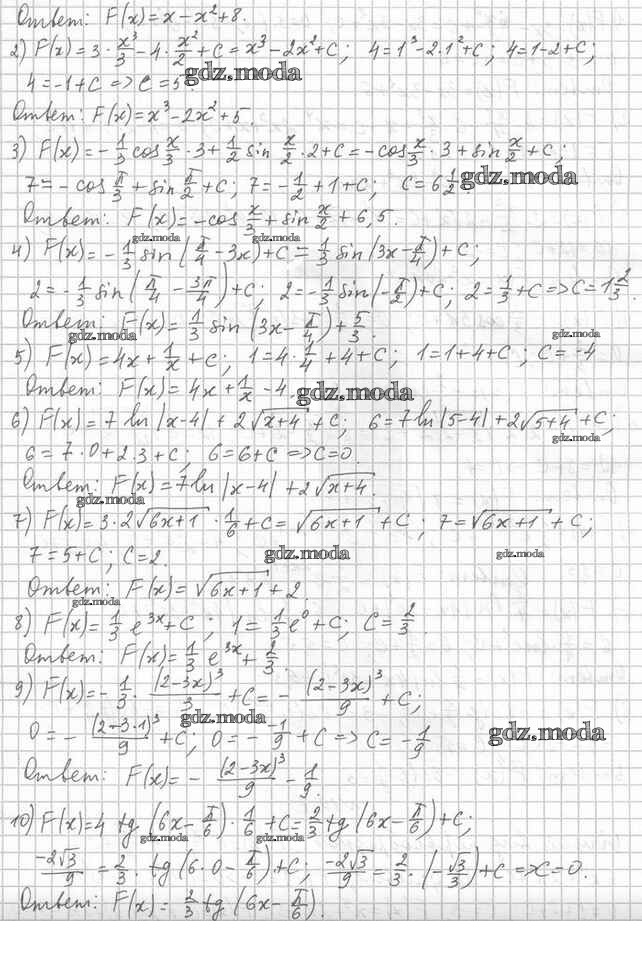 Ответ: F(x)=x-x²+8.
2) F(x)=3·x³/3-4·x²/2+C=x³-2x²+C; 4=1³-2·1²+C; 4=1-2+C;
4=-1+C=>C=5.
gdz.moda
Ответ: F(x)=x³-2x²+5.
3) F(x)=-1/3 cos x/3·3+1/2 sin x/2·2+C=-cos x/3·3+sin x/2+C;
7=-cos π/3+sin π/2+C; 7=-1/2+1+C; C=6 1/2.
gdz.moda
Ответ: F(x)=-cos x/3+sin x/2+6,5.
gdz.moda gdz.moda
4) F(x)=-1/3 sin(π/4-3x)+C=1/3 sin(3x-π/4)+C;
2=-1/3 sin(π/4-3π/4)+C; 2=-1/3 sin(-π/2)+C; 2=1/3+C=>C=1 2/3.
Ответ: F(x)=1/3 sin(3x-π/4)+5/3.
gdz.moda gdz.moda
5) F(x)=4x+1/x+C; 1=4·1/4+4+C; 1=1+4+C; C=-4
Ответ: F(x)=4x+1/x-4.
gdz.moda
6) F(x)=7 ln|x-4|+2√(x+4)+C; 6=7 ln|5-4|+2√(5+4)+C;
gdz.moda
6=7·0+2·3+C; 6=6+C=>C=0.
Ответ: F(x)=7 ln|x-4|+2√(x+4).
gdz.moda
7) F(x)=3·2√(6x+1)·1/6+C=√(6x+1)+C; 7=√(6x+1)+C;
7=5+C; C=2.
gdz.moda gdz.moda
Ответ: F(x)=√(6x+1)+2.
gdz.moda
8) F(x)=1/3 e³ˣ+C; 1=1/3 e⁰+C; C=2/3.
Ответ: F(x)=1/3 e³ˣ+2/3.
9) F(x)=-1/3·(2-3x)³/3+C=-(2-3x)³/9+C;
gdz.moda
0=-(2-3·1)³/9+C; 0=--1/9+C=>C=-1/9
gdz.moda
Ответ: F(x)=-(2-3x)³/9-1/9.
10) F(x)=4 tg(6x-π/6)·1/6+C=2/3 tg(6x-π/6)+C;
gdz.moda gdz.moda
-2√3/9=2/3·tg(6·0-π/6)+C; -2√3/9=2/3·(-√3/3)+C=>C=0.
Ответ: F(x)=2/3 tg(6x-π/6).